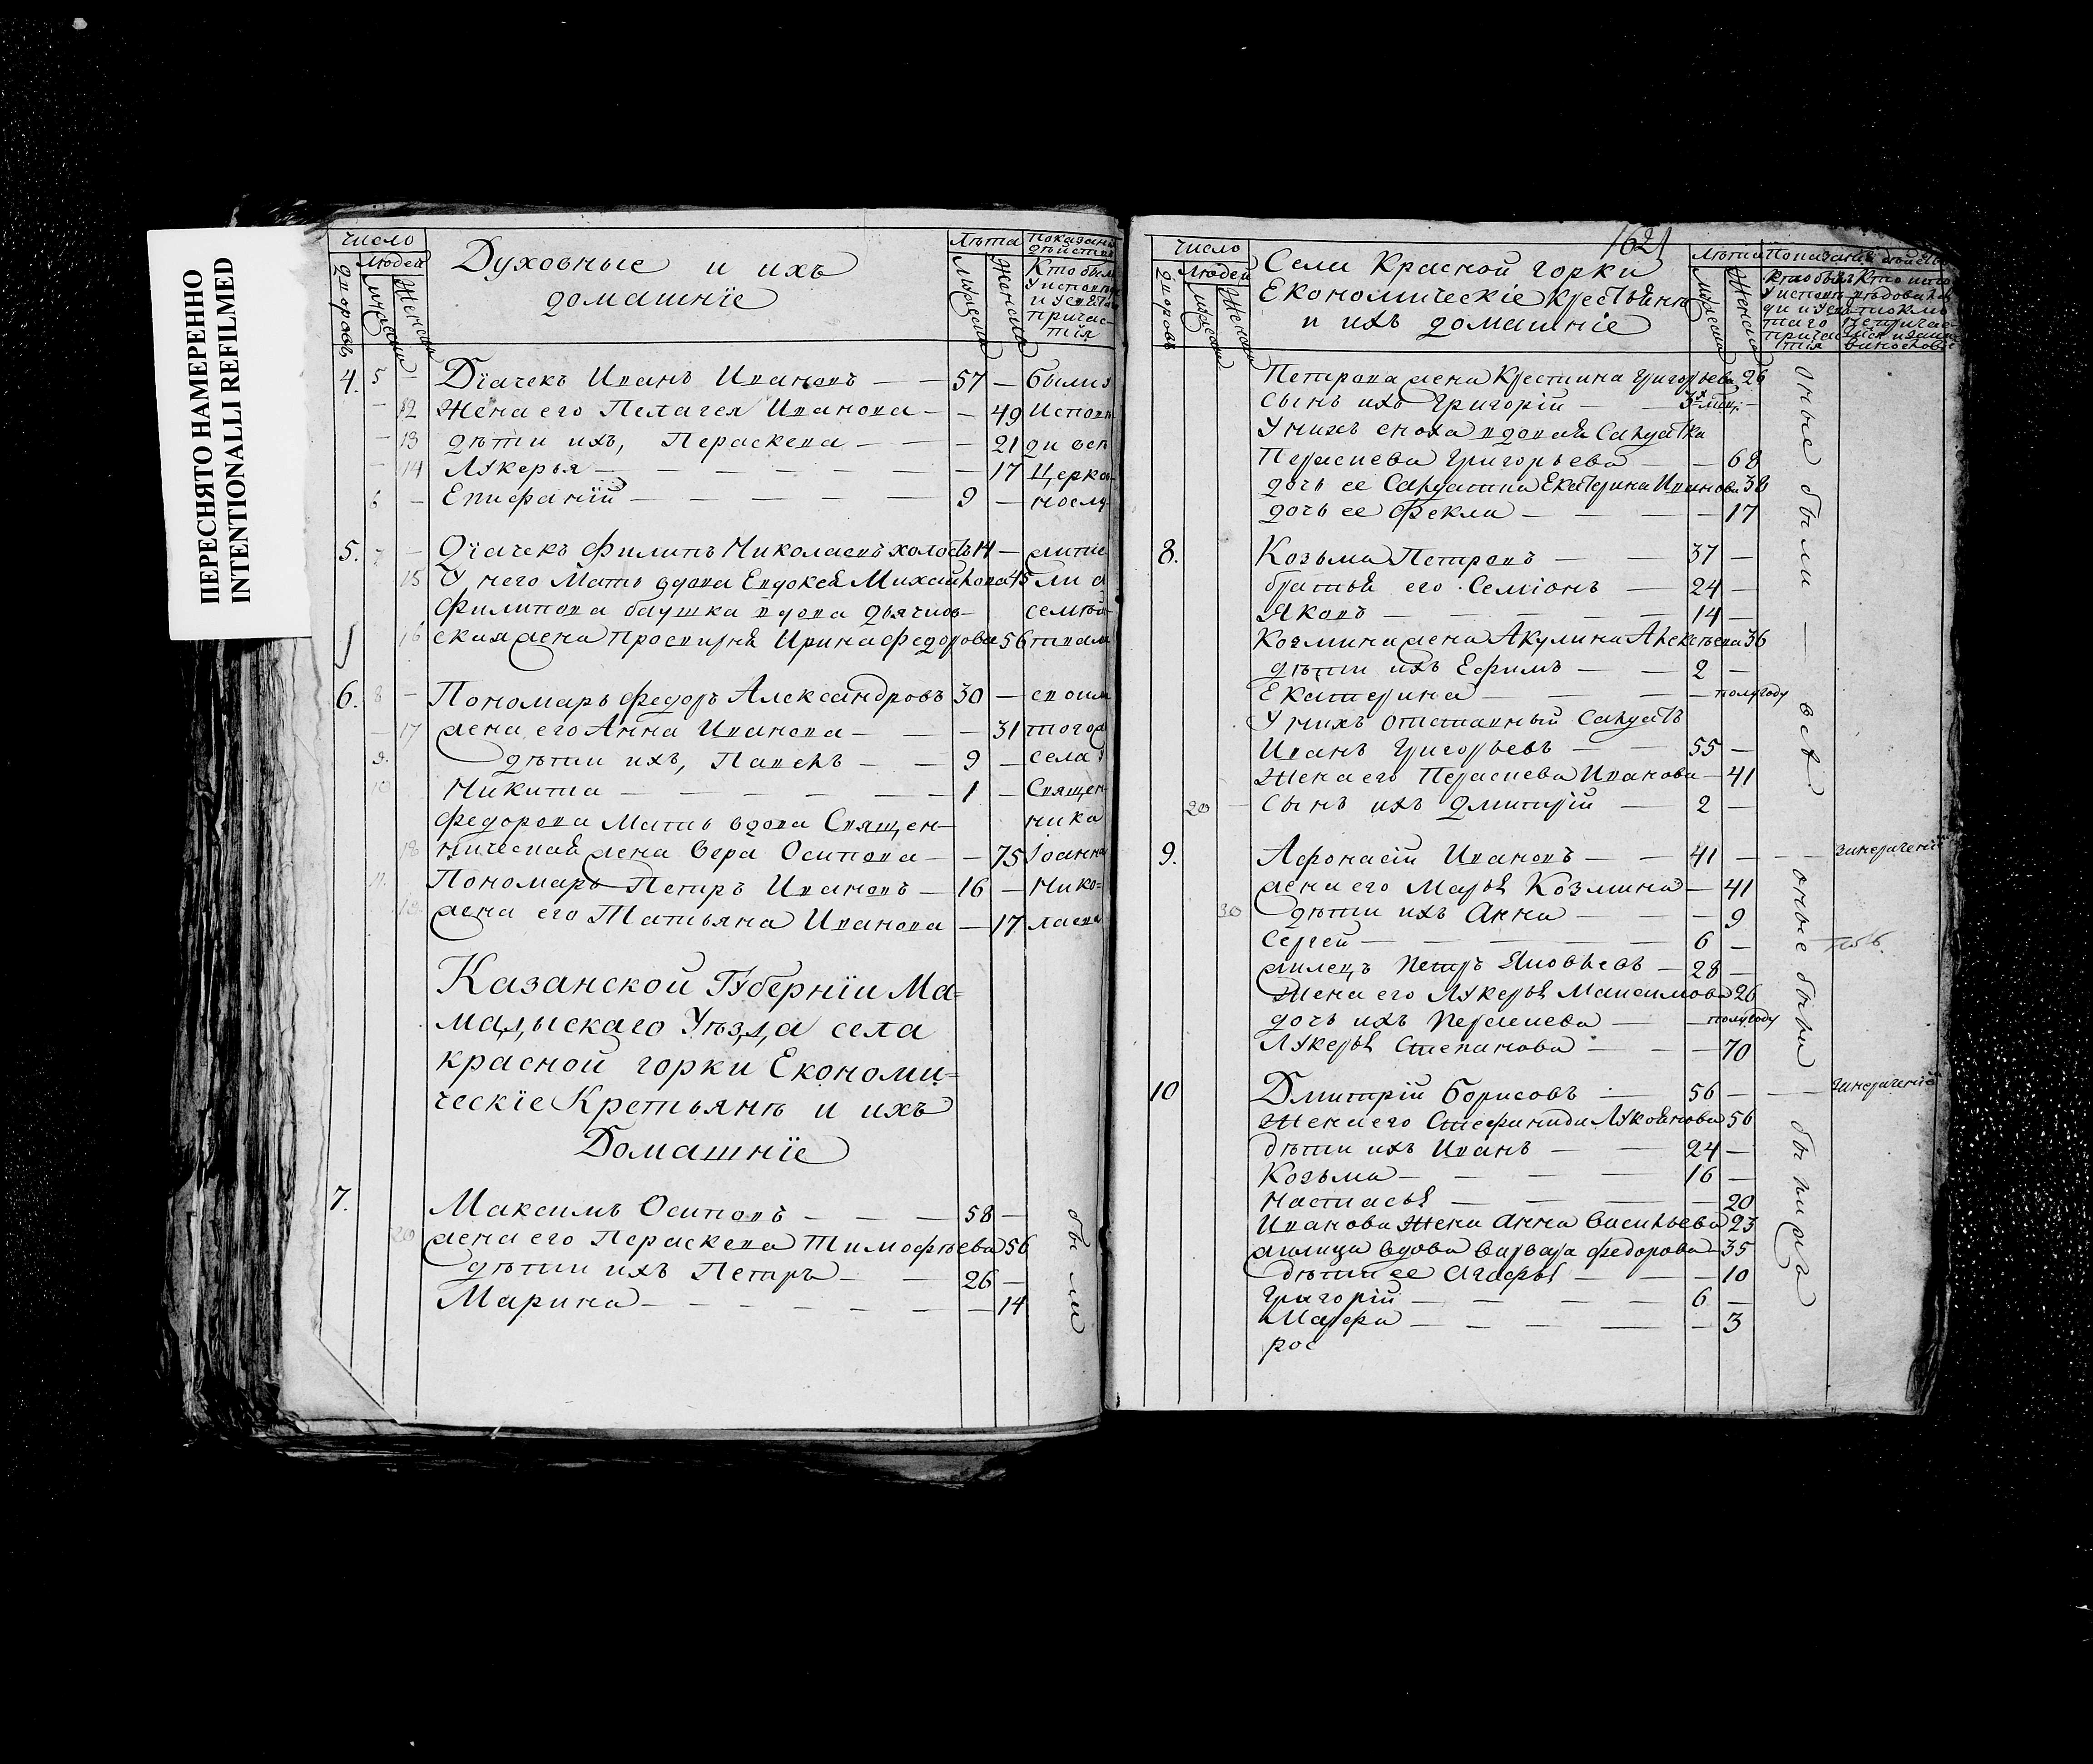 ПЕРЕСНЯТО НАМЕРЕННО
INTENTIONALLI REFILMED
число
людей
дворовъ
мужеска
женска
Духовные и ихъ
домашнїе
лѣта
мужеска
женска
показанїе
дѣйства
Кто были
у исповѣ
и у свята
причас-
тїя
4. 5 — Дїачекъ Иванъ Ивановъ — — 57 — были у
— 12 Жена его Пелагея Иванова — — 49 исповѣ
— 13 дѣти ихъ, Параскева — — — 21 ди всѣ
— 14 Лукерья — — — — — — — 17 церков-
6 — Епифанїй — — — — — 9 — нослу-
5. 7 — Дїачекъ Филипъ Николаевъ холостъ 14 — жите
15 У него Мать вдова Евдокея Михайлова 45 ли с
Филипова баушка вдова дьячков- семьй-
16 ская жена просвирня Ирина Федорова 56 ствам
6. 8 — Пономарь Федоръ Александровъ 30 — своим
— 17 жена его Анна Иванова — — — 31 того ж
9. дѣти ихъ, Павелъ — — 9 — села у
10 Никита — — — — — — 1 — Священ-
Федорова Мать вдова Священ- ника
18 ническая жена Вера Осипова — — 75 Іоанна
11. Пономарь Петръ Ивановъ — 16 — Нико-
19 жена его Татьяна Иванова — 17 лаева
Казанской Губернїи Ма-
мадыскаго Уѣзда села
красной горки Економи-
ческїе Кретьянѣ и ихъ
Домашнїе
7. Максимъ Осиповъ — — — 58 —
20 жена его Пераскева Тимофѣева 56
дѣти ихъ Петръ — — 26 —
Марина — — — — — — — 14
были
1621
число
людей
дворовъ
мужеска
женска
Села Красной горки
Економическіе крестьянѣ
и ихъ домашніе
лѣта
мужеска
женска
Показаніе дѣйства
Петрова жена Крестина Григорьева 26
сынъ ихъ Григорій — — 3х мец: —
У нихъ сноха вдовая Салдатка
Пераскева Григорьева — — 68
дочь ее Салдатка Екатерина Иванова 38
дочь ее Фекла — — — — 17
8. Козьма Петровъ — — 37 —
братья его Семіонъ — 24 —
Яковъ — — — — — 14 —
Козмина жена Акулина Алексѣева 36
дѣти ихъ Ефимъ — — 2 —
Екатерина — — — — полугоду
У нихъ отставный Салдатъ
Иванъ Григорьевъ — — 55 —
жена его Пераскева Иванова — 41
20 — сынъ ихъ Дмитрій — 2 —
оные были — всѣ.
9. Афонасій Ивановъ — — 41 — — —
жена его Марья Козмина — 41
30 дѣти ихъ Анна — — — 9
Сергей — — — — — 6 —
жилецъ Петръ Яковлевъ — 28 —
Жена его Лукерья Максимова 26
дочь ихъ Пераскева — — полугоду
Лукерья Степанова — — — 70
10 Дмитрій Борисовъ — 56 — — —
Жена его Стефанида Лукоянова 56
дѣти ихъ Иванъ — — 24 —
Козьма — — — — 16 —
Настасья — — — — 20
Иванова Жена Анна Васильева 23
жилица вдова Варвара Федорова 35
дѣти ее Агафья — — — 10
Григорій — — — — 6 —
Марфа — — — — — 3
рос
оные были